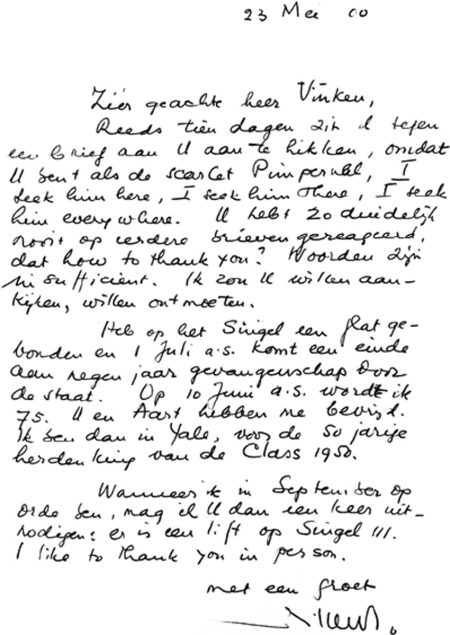 23 Mei 00
Zéér geachte heer Vinken,
Reeds tien dagen zit ik tegen
een brief aan U aan te hikken, omdat
U bent als de scarlet Pimpernel, I
seek him here, I seek him there, I seek
him everywhere. U hebt zo duidelijk
nooit op eerdere brieven gereageerd,
dat how to thank you? Woorden zijn
insufficient. Ik zou U willen aan-
kijken, willen ontmoeten.
Heb op het Singel een flat ge-
vonden en 1 Juli a.s. komt een einde
aan negen jaar gevangenschap door
de staat. Op 10 Juni a.s. wordt ik
75. U en Aart hebben me bevrijd.
Ik ben dan in Yale, voor de 50 jarige
herdenking van de Class 1950.
Wanneer ik in September op
orde ben, mag ik U dan een keer uit-
nodigen: er is een lift op Singel 111.
I like to thank you in person.
met een groet